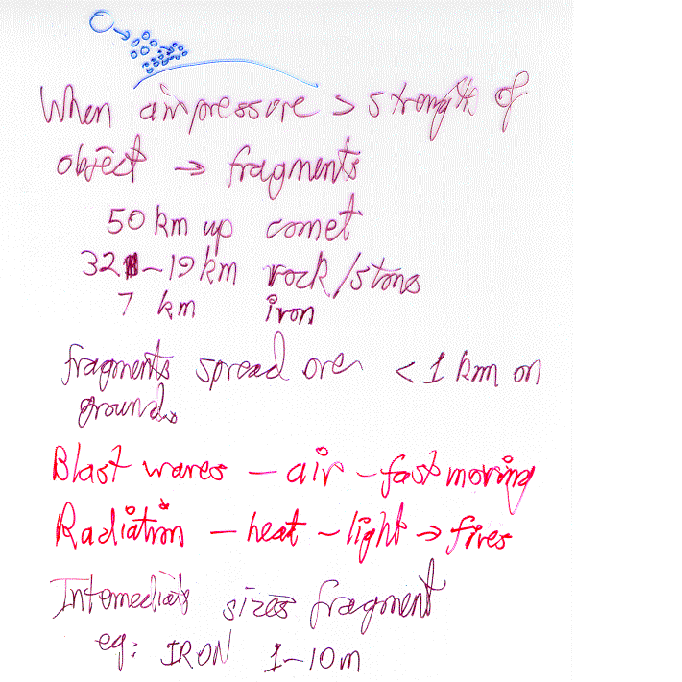 When air pressure > strength of
object → fragments
50 km up comet
32 - 19 km rock/stone
7 km iron
fragments spread over < 1 km on
ground.
Blast waves - air - fast moving
Radiation - heat - light → fires
Intermediate sizes fragment
eg: IRON 1-10m